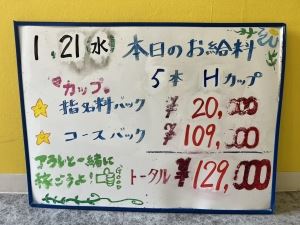 1.21(水) 本日のお給料
5本 Hカップ
カップ。
指名料バック ¥ 20,000
コースバック ¥ 109,000
アラレと一緒に
稼ごうよ! GOOD
トータル ¥129,000